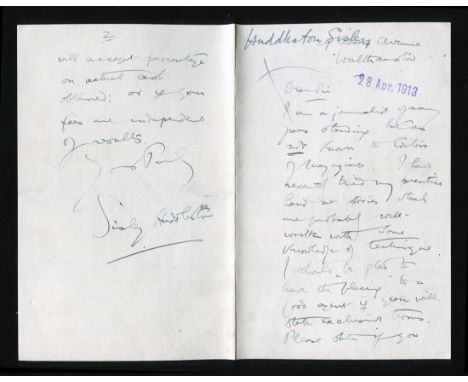 Huddleston Sisley Avenue
Walthamstow
28 Apr. 1913
Dear Sir
I am a journalist of many
years standing. But am
not known to Editors
of Magazines. I have
recently tried my
hand at stories which
are probably well-
written with some
knowledge of technique
I should be glad to
leave the "placing" to a
good agent if you will
state exclusive terms.
Please state if you
2
will accept percentage
on actual cash
obtained; or if your
fees are independent
of results
Yours Truly
Sisley Huddleston